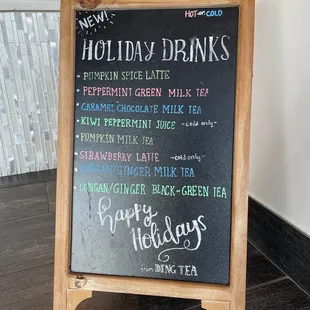 NEW!
HOT or COLD
HOLIDAY DRINKS
• PUMPKIN SPICE LATTE
• PEPPERMINT GREEN MILK TEA
• CARAMEL CHOCOLATE MILK TEA
• KIWI PEPPERMINT JUICE -cold only-
• PUMPKIN MILK TEA
• STRAWBERRY LATTE -cold only-
• LONGAN/GINGER MILK TEA
• LONGAN/GINGER BLACK-GREEN TEA
Happy
Holidays
from DING TEA